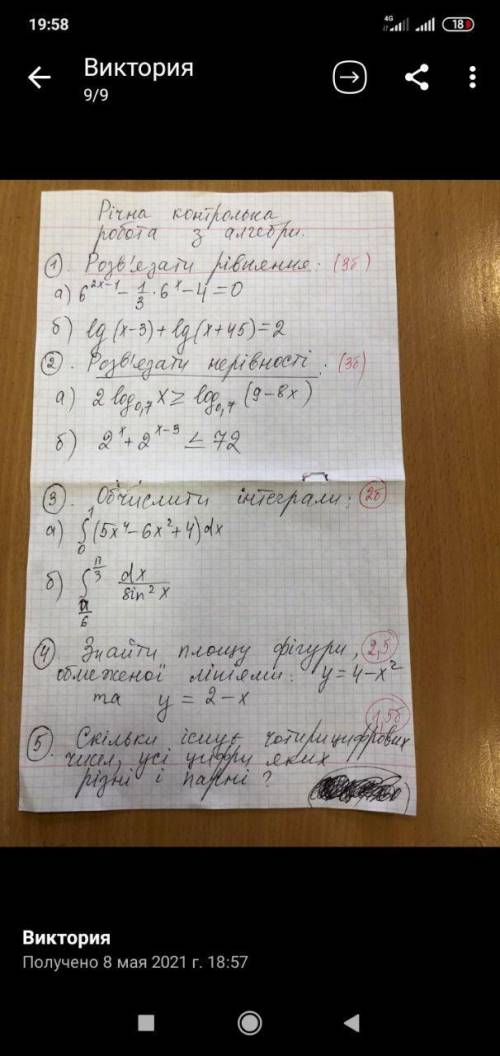 19:58
4G
18
Виктория
9/9
Річна контрольна
робота з алгебри.
1. Розв'язати рівняння: (3б)
а) 6^{2x-1} - 1/3 · 6^x - 4 = 0
б) lg(x-3) + lg(x+45) = 2
2. Розв'язати нерівності. (3б)
а) 2log_{0,7} x ≥ log_{0,7} (9-8x)
б) 2^x + 2^{x-3} ≤ 72
3. Обчислити інтеграли: 2б
а) ∫_0^1 (5x^4 - 6x^2 + 4)dx
б) ∫_{π/6}^{π/3} dx/sin^2 x
4. Знайти площу фігури, 2,5
обмеженої лініями: y = 4 - x^2
та y = 2 - x
1,5б
5. Скільки існує чотирицифрових
чисел, усі цифри яких
різні і парні?
Виктория
Получено 8 мая 2021 г. 18:57